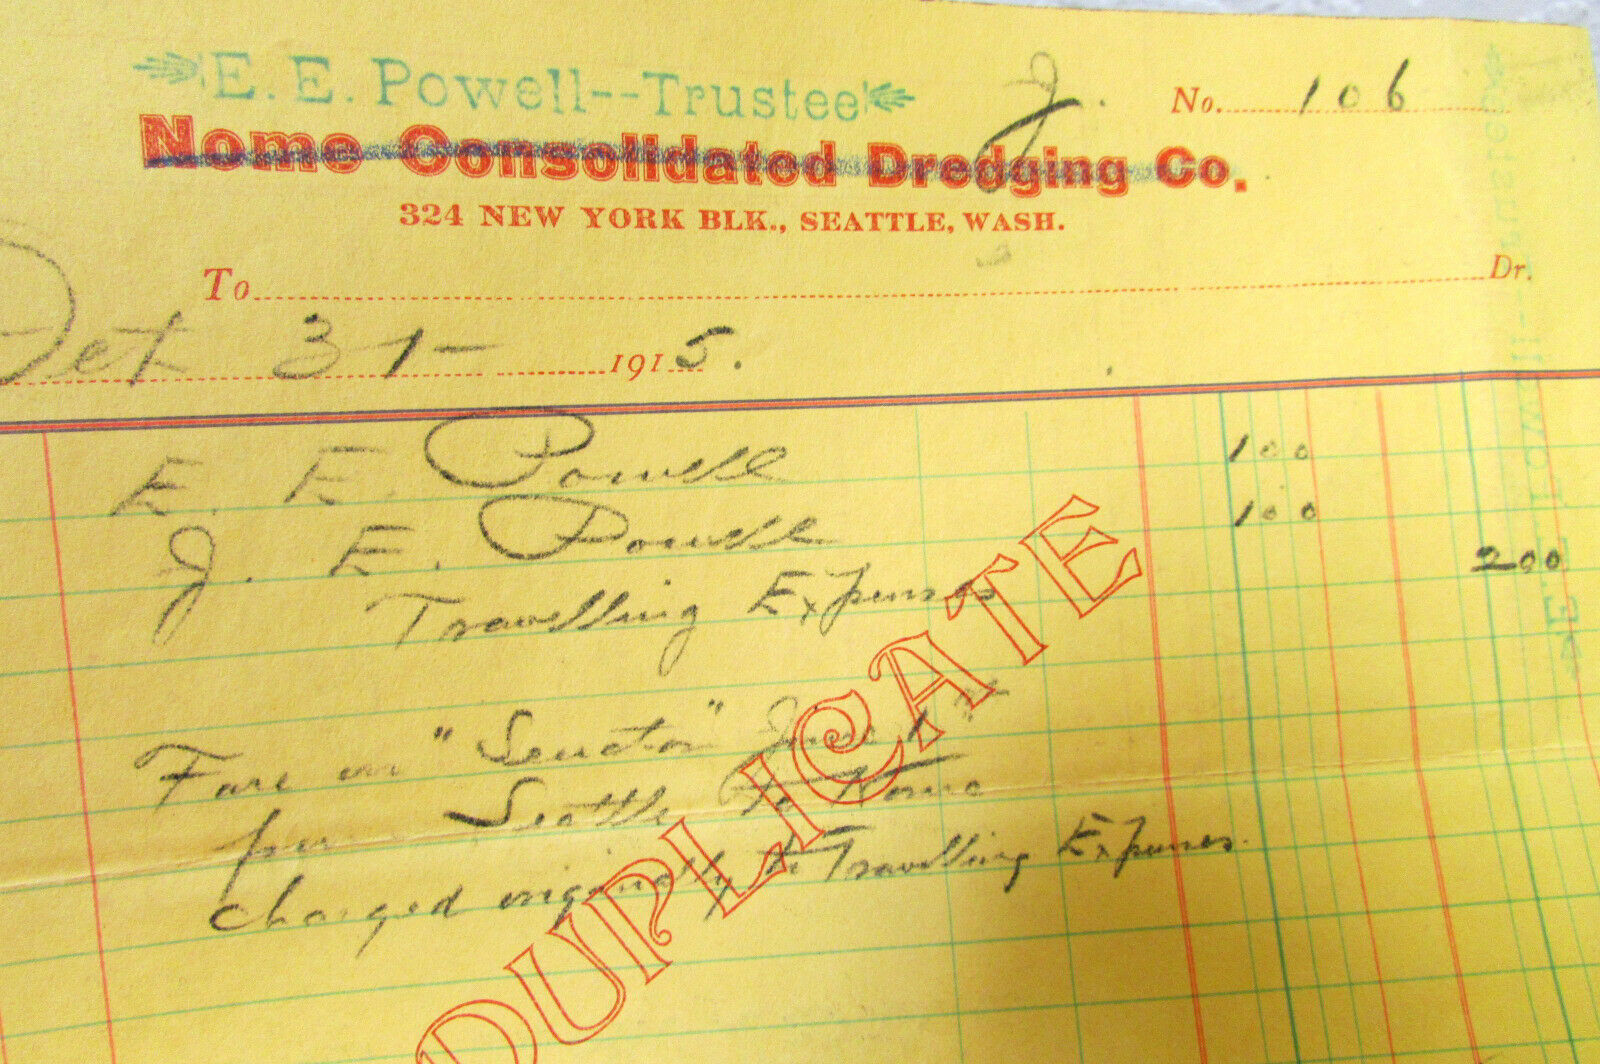 E. E. Powell--Trustee
J. No. 106
Nome Consolidated Dredging Co.
324 NEW YORK BLK., SEATTLE, WASH.
To Dr.
Oct 31- 1915.
E. E. Powell 100
J. E. Powell 100
Travelling Expenses 200
Fare on "Senator" June 1st
per Seattle To Nome
charged originally to Travelling Expenses.
DUPLICATE